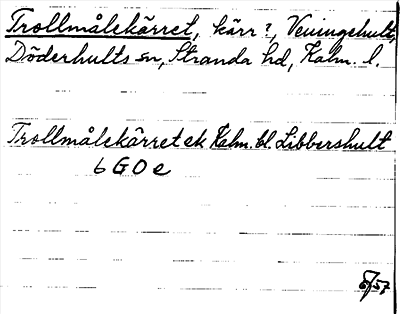 Trollmålekärret, kärr?, Veningehult,
Döderhults sn, Stranda hd, Kalm. l.
Trollmålekärret ek Kalm. bl. Libbershult
6 G O e
5/57